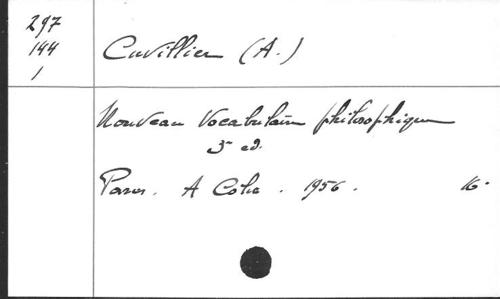 297
144
1
Cuvillier (A.)
Nouveau Vocabulaire philosophique
3e ed.
Paris. A Colin. 1956. 16.